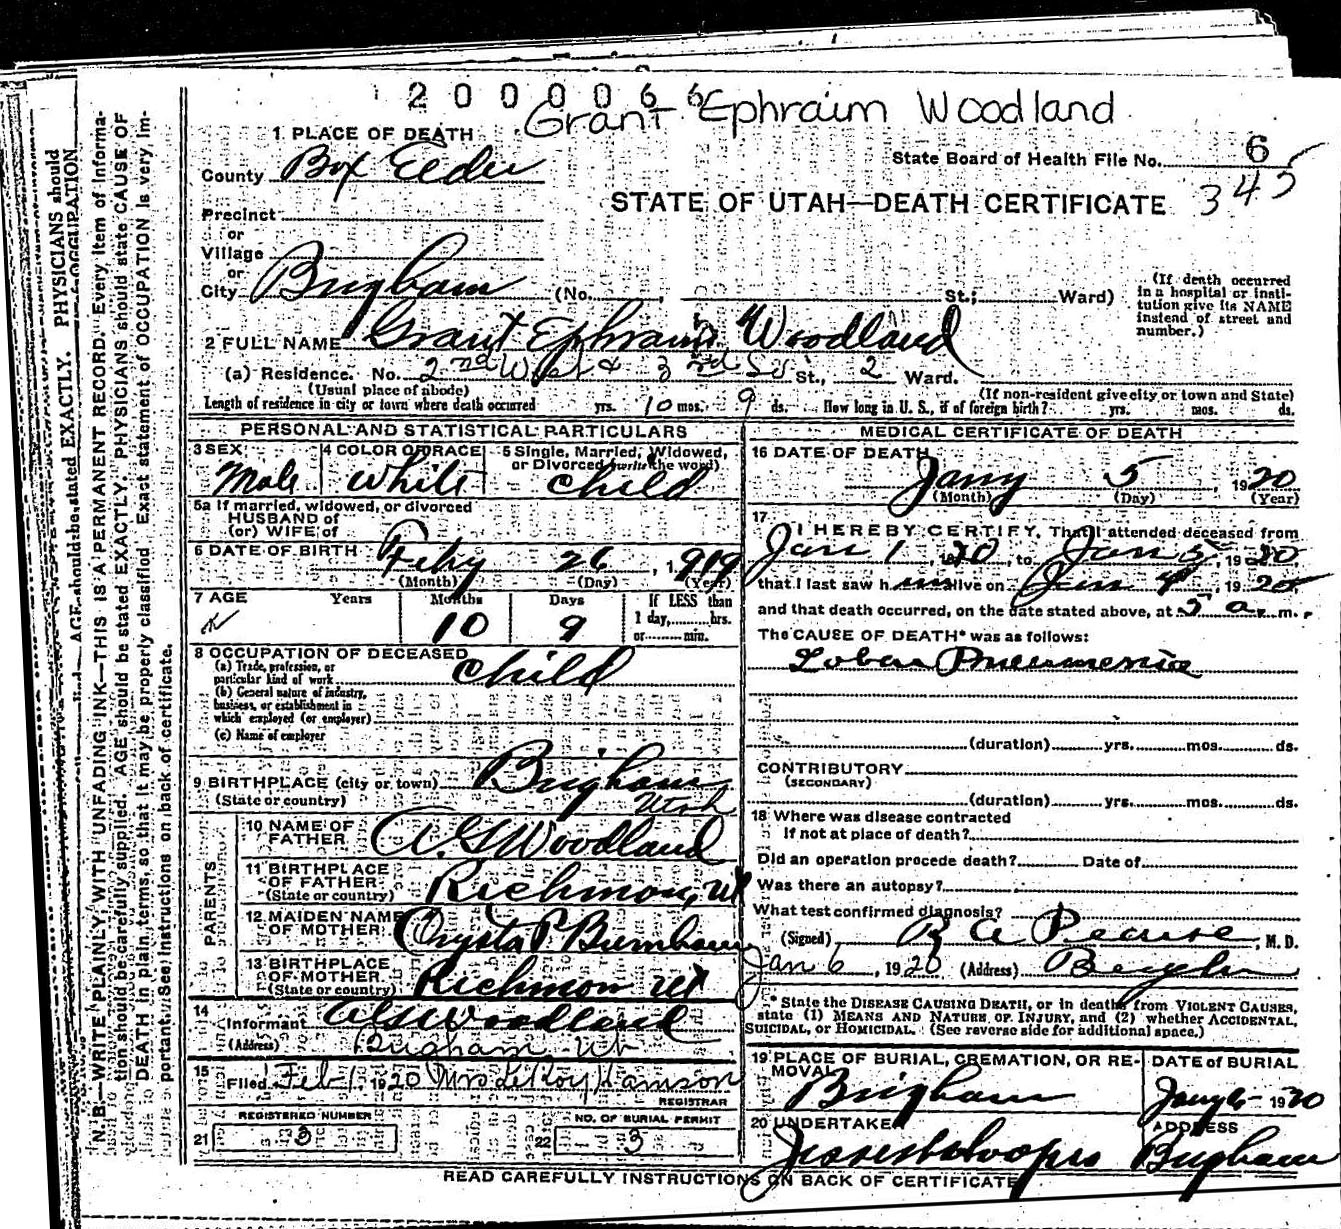 2000066
Grant Ephraim Woodland
1 PLACE OF DEATH
State Board of Health File No. 6
County Box Elder
345
STATE OF UTAH—DEATH CERTIFICATE
Precinct
or
Village
or
City Brigham (No. St.; Ward)
(If death occurred in a hospital or institution give its NAME instead of street and number.)
2 FULL NAME Grant Ephraim Woodland
(a) Residence. No. 2nd West & 3rd So St., 2 Ward.
(Usual place of abode) (If non-resident give city or town and State)
Length of residence in city or town where death occurred yrs. 10 mos. 9 ds. How long in U. S., if of foreign birth? yrs. mos. ds.
PERSONAL AND STATISTICAL PARTICULARS
3 SEX Male
4 COLOR OR RACE White
5 Single, Married, Widowed, or Divorced (write the word) Child
5a If married, widowed, or divorced
HUSBAND of
(or) WIFE of
6 DATE OF BIRTH Feby 26, 1919
(Month) (Day) (Year)
7 AGE Years Months Days If LESS than
10 9 1 day, hrs.
or min.
8 OCCUPATION OF DECEASED
(a) Trade, profession, or particular kind of work Child
(b) General nature of industry, business, or establishment in which employed (or employer)
(c) Name of employer
9 BIRTHPLACE (city or town) Brigham
(State or country) Utah
PARENTS
10 NAME OF FATHER A. G. Woodland
11 BIRTHPLACE OF FATHER (State or country) Richmon, Ut
12 MAIDEN NAME OF MOTHER Crysta P. Burnham
13 BIRTHPLACE OF MOTHER (State or country) Richmon Ut
14
Informant A G Woodland
(Address) Brigham Ut
15
Filed Feb 1 1920 Mrs LeRoy Hamson
REGISTRAR
REGISTERED NUMBER
21 3
NO. OF BURIAL PERMIT
22 3
MEDICAL CERTIFICATE OF DEATH
16 DATE OF DEATH
Jany 5, 1920
(Month) (Day) (Year)
17
I HEREBY CERTIFY, That I attended deceased from
Jan 1, 1920, to Jan 5, 1920
that I last saw him alive on Jan 4, 1920
and that death occurred, on the date stated above, at 5 a. m.
The CAUSE OF DEATH* was as follows:
Lobar Pneumonia
(duration) yrs. mos. ds.
CONTRIBUTORY
(SECONDARY)
(duration) yrs. mos. ds.
18 Where was disease contracted
if not at place of death?
Did an operation procede death? Date of
Was there an autopsy?
What test confirmed diagnosis?
(Signed) R A Pearse, M. D.
Jan 6, 1920 (Address)
* State the DISEASE CAUSING DEATH, or in deaths from VIOLENT CAUSES,
state (1) MEANS AND NATURE OF INJURY, and (2) whether ACCIDENTAL,
SUICIDAL, or HOMICIDAL. (See reverse side for additional space.)
19 PLACE OF BURIAL, CREMATION, OR REMOVAL
Brigham
DATE of BURIAL
Jany 6 1920
20 UNDERTAKER
ADDRESS
Brigham
READ CAREFULLY INSTRUCTIONS ON BACK OF CERTIFICATE
N. B.—WRITE PLAINLY WITH UNFADING INK—THIS IS A PERMANENT RECORD. Every item of informa-
tion should be carefully supplied. AGE should be stated EXACTLY. PHYSICIANS should state CAUSE OF
DEATH in plain terms, so that it may be properly classified. Exact statement of OCCUPATION is very im-
portant. See instructions on back of certificate.
AGE should be stated EXACTLY. PHYSICIANS should
of OCCUPATION